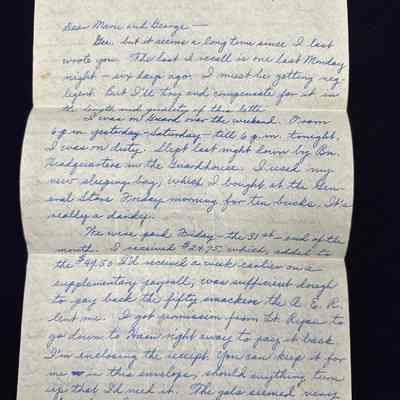 Dear Mom and George —
Gee, but it seems a long time since I last
wrote you. The last I recall is one last Monday
night – six days ago. I must be getting neg-
ligent. But I'll try and compensate for it in
the length and quality of this letter.
I was on Guard over the weekend. From
6 p.m. yesterday – Saturday – till 6 p.m. tonight,
I was on duty. Slept last night down by Bn.
Headquarters in the Guardhouse. I used my
new sleeping bag, which I bought at the Gen-
eral Store Friday morning for ten bucks. It's
really a dandy.
We were paid Friday – the 31st – end of the
month. I received $24.75 which, added to
the $49.50 I'd received a week earlier on a
supplementary payroll, was sufficient dough
to pay back the fifty smackers the A. E. R.
lent me. I got permission from Lt. to
go down to right away to pay it back.
I'm enclosing the receipt. You can keep it for
me in this envelope, should anything turn
up that I'd need it. The gals seemed very